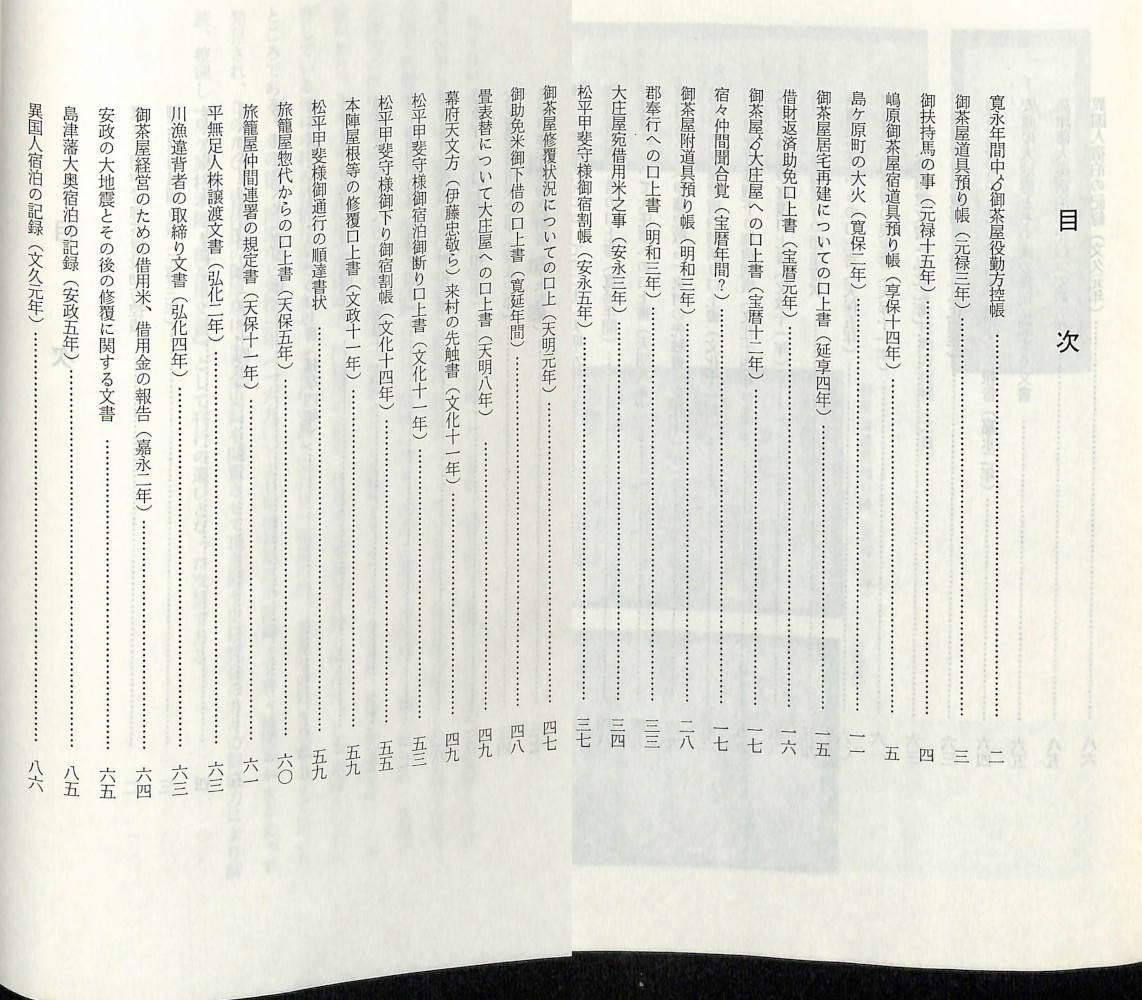 目次
寛永年間中ゟ御茶屋役勤方控帳……二
御茶屋道具預り帳（元禄三年）……三
御扶持馬の事（元禄十五年）……四
嶋原御茶屋宿道具預り帳（享保十四年）……五
島ヶ原町の大火（寛保二年）……一一
御茶屋居宅再建についての口上書（延享四年）……一五
借財返済助免口上書（宝暦元年）……一六
御茶屋ゟ大庄屋への口上書（宝暦十二年）……一七
宿々仲間聞合覚（宝暦年間？）……一七
御茶屋附道具預り帳（明和三年）……二八
郡奉行への口上書（明和三年）……三三
大庄屋宛借用米之事（安永三年）……三四
松平甲斐守様御宿割帳（安永五年）……三七
御茶屋修覆状況についての口上（天明元年）……四七
御助免米御下借の口上書（寛延年間）……四八
畳表替について大庄屋への口上書（天明八年）……四九
幕府天文方（伊藤忠敬ら）来村の先触書（文化十一年）……四九
松平甲斐守様御宿泊御断り口上書（文化十一年）……五三
松平甲斐守様御下り御宿割帳（文化十四年）……五五
本陣屋根等の修覆口上書（文政十一年）……五九
松平甲斐様御通行の順達書状……五九
旅籠屋惣代からの口上書（天保五年）……六〇
旅籠屋仲間連署の規定書（天保十一年）……六一
平無足人株譲渡文書（弘化二年）……六三
川漁違背者の取締り文書（弘化四年）……六三
御茶屋経営のための借用米、借用金の報告（嘉永二年）……六四
安政の大地震とその後の修覆に関する文書……六五
島津藩大奥宿泊の記録（安政五年）……八五
異国人宿泊の記録（文久元年）……八六